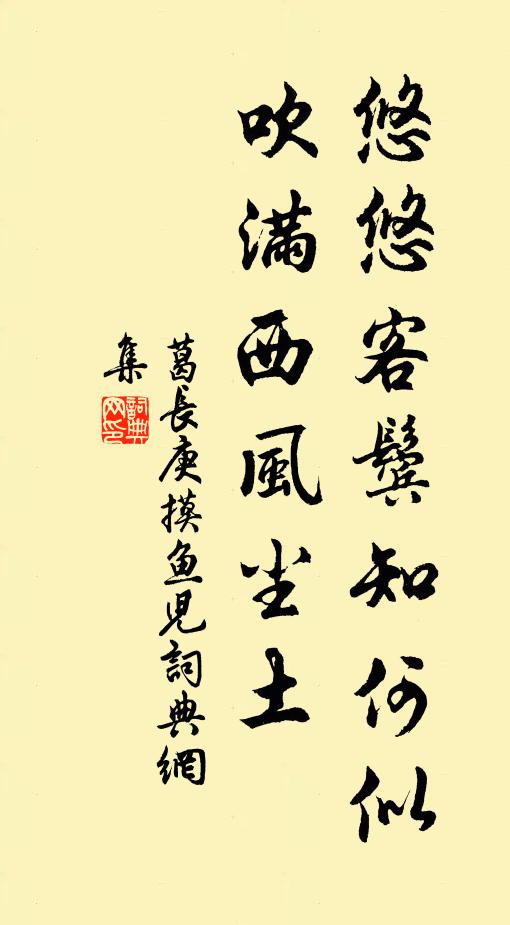 悠悠客鬢知何似
吹滿西風尘土
葛長庚摸鱼児詞典網
集
詞典网印